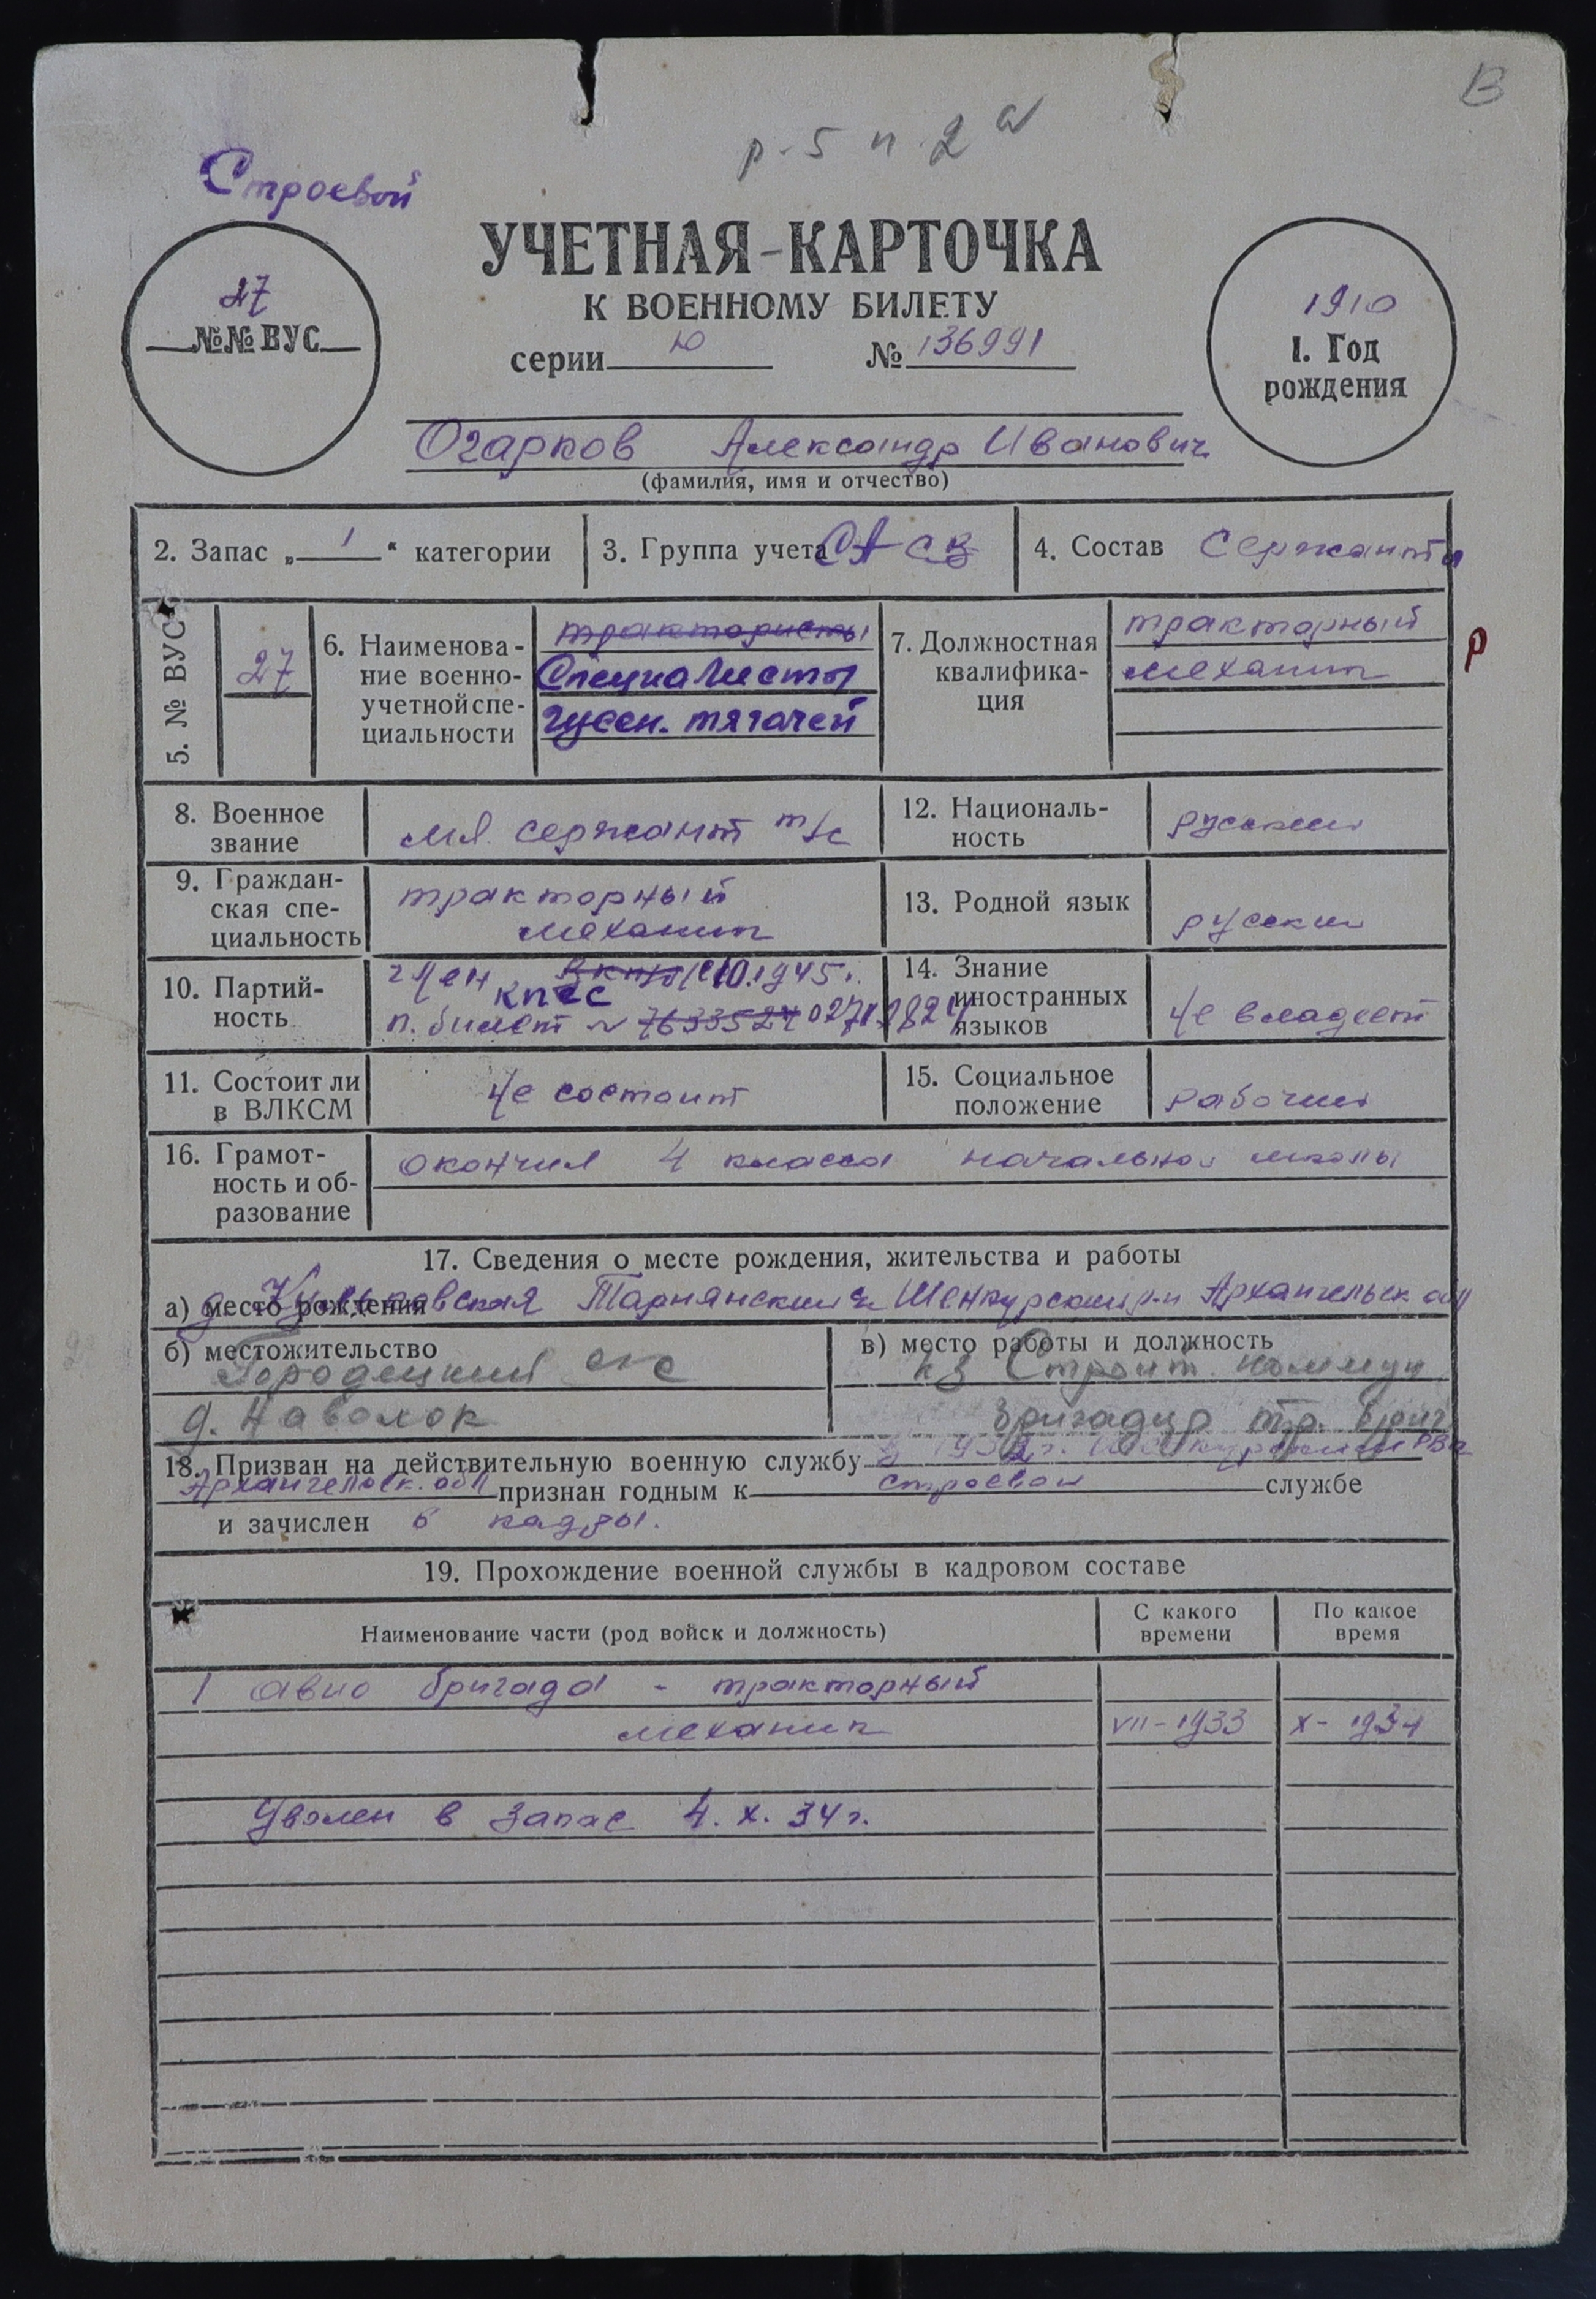 В
р. 5 п. 2 а
Строевой
УЧЕТНАЯ-КАРТОЧКА
К ВОЕННОМУ БИЛЕТУ
серии Ю № 136991
27
№№ ВУС
1910
1. Год
рождения
Огарков Александр Иванович
(фамилия, имя и отчество)
2. Запас „1“ категории
3. Группа учета СА
4. Состав Сержанты
5. № ВУС
27
6. Наименова-
ние военно-
учетной спе-
циальности
трактористы
Специалисты
гусен. тягачей
7. Должностная
квалифика-
ция
тракторный
механик
р
8. Военное
звание
мл. сержант т/с
12. Националь-
ность
русский
9. Граждан-
ская спе-
циальность
тракторный
механик
13. Родной язык
русский
10. Партий-
ность
член ВКП/б/ с 10.1945г.
КПСС
п. билет № 7633524 02712824
14. Знание
иностранных
языков
не владеет
11. Состоит ли
в ВЛКСМ
не состоит
15. Социальное
положение
рабочий
16. Грамот-
ность и об-
разование
окончил 4 класса начальной школы
17. Сведения о месте рождения, жительства и работы
а) место рождения д. Тарнянский Шенкурский р-н Архангельск. обл
б) местожительство
Городецкий с/с
д. Наволок
в) место работы и должность
кз Строит. коммун
бригадир тр. бриг.
18. Призван на действительную военную службу в 1932г. Шенкурским РВК
Архангельск. обл признан годным к строевой службе
и зачислен в кадры.
19. Прохождение военной службы в кадровом составе
Наименование части (род войск и должность)
С какого
времени
По какое
время
1 авио бригада - тракторный
механик VII-1933 X-1934
Уволен в запас 4. X. 34г.